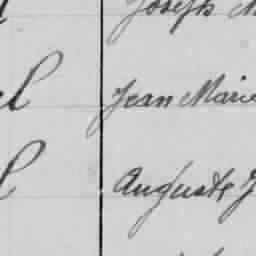 Joseph M
Jean Marie
Auguste J